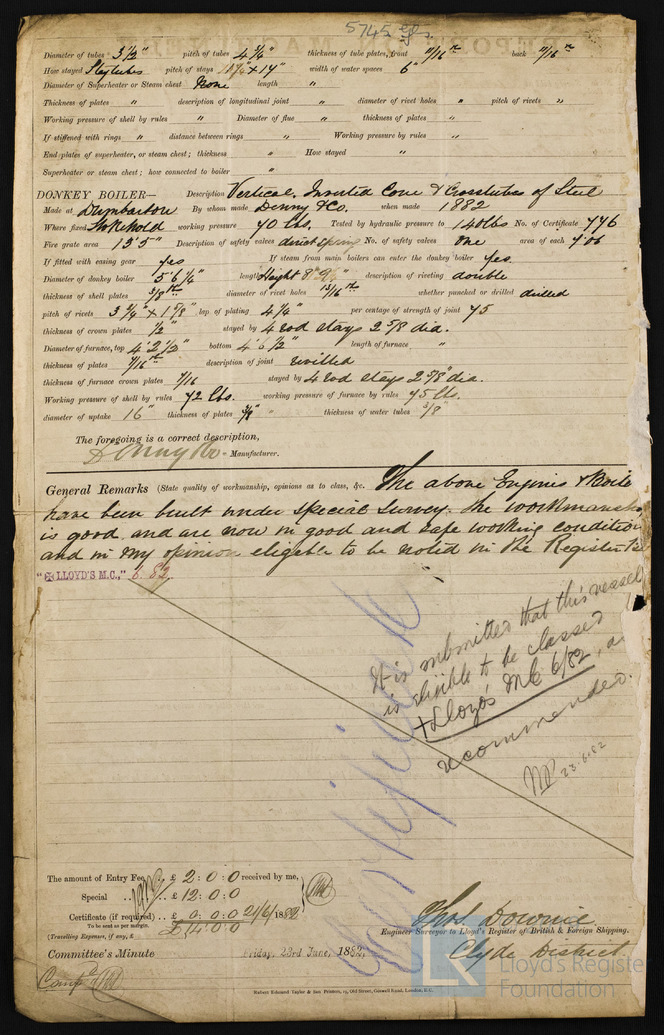 5745 gls
Diameter of tubes 3 1/2" pitch of tubes 4 3/4" thickness of tube plates, front 11/16 th back 11/16 th
How stayed Staytubes pitch of stays × 14" width of water spaces 6"
Diameter of Superheater or Steam chest None length "
Thickness of plates " description of longitudinal joint " diameter of rivet holes " pitch of rivets "
Working pressure of shell by rules " Diameter of flue " thickness of plates "
If stiffened with rings " distance between rings " Working pressure by rules "
End plates of superheater, or steam chest; thickness " How stayed "
Superheater or steam chest; how connected to boiler "
DONKEY BOILER— Description Vertical, Inverted Cone & Crosstubes of Steel
Made at Dumbarton By whom made Denny & Co. when made 1882
Where fixed Stokehold working pressure 70 lbs. Tested by hydraulic pressure to 140lbs No. of Certificate 776
Fire grate area 15'5" Description of safety valves direct spring No. of safety valves one area of each 7.06
If fitted with easing gear yes If steam from main boilers can enter the donkey boiler yes.
Diameter of donkey boiler 5' 6 1/4" length Height 8' description of riveting double
thickness of shell plates 3/8 th diameter of rivet holes 13/16 th whether punched or drilled drilled
pitch of rivets 3 1/4" × 1 5/8" lap of plating 4 1/4" per centage of strength of joint 75
thickness of crown plates 1/2" stayed by 4 rod stays 2 5/8 dia.
Diameter of furnace, top 4' 2 1/2" bottom 4' 6 1/2" length of furnace "
thickness of plates 7/16 th description of joint welded
thickness of furnace crown plates 7/16 stayed by 4 rod stays 2 5/8" dia.
Working pressure of shell by rules 72 lbs. working pressure of furnace by rules 75 lbs.
diameter of uptake 16" thickness of plates 3/8" thickness of water tubes 3/8"
The foregoing is a correct description,
Denny & Co - Manufacturer.
General Remarks (State quality of workmanship, opinions as to class, &c. The above Engines & Boiler
have been built under special survey. the workmanship
is good and are now in good and safe working condition
and in my opinion eligible to be noted in the Register
"✠ LLOYD'S M.C.," 6. 82.
It is submitted that this vessel
is eligible to be classed
+ Lloyd's MC 6/82, as
recommended.
23.6.82
Certificate
The amount of Entry Fee .. £ 2 : 0 : 0 received by me,
Special .. £ 12 : 0 : 0
Certificate (if required) .. £ 0 : 0 : 0 21/6/1882
To be sent as per margin. £ 14 : 0 : 0
(Travelling Expenses, if any, £
Thos Downie
Engineer Surveyor to Lloyd's Register of British & Foreign Shipping.
Clyde District
Committee's Minute Friday, 23rd June, 1882
Robert Edmund Taylor & Son Printers, 19, Old Street, Goswell Road, London, E.C.
LR Lloyd's Register
Foundation